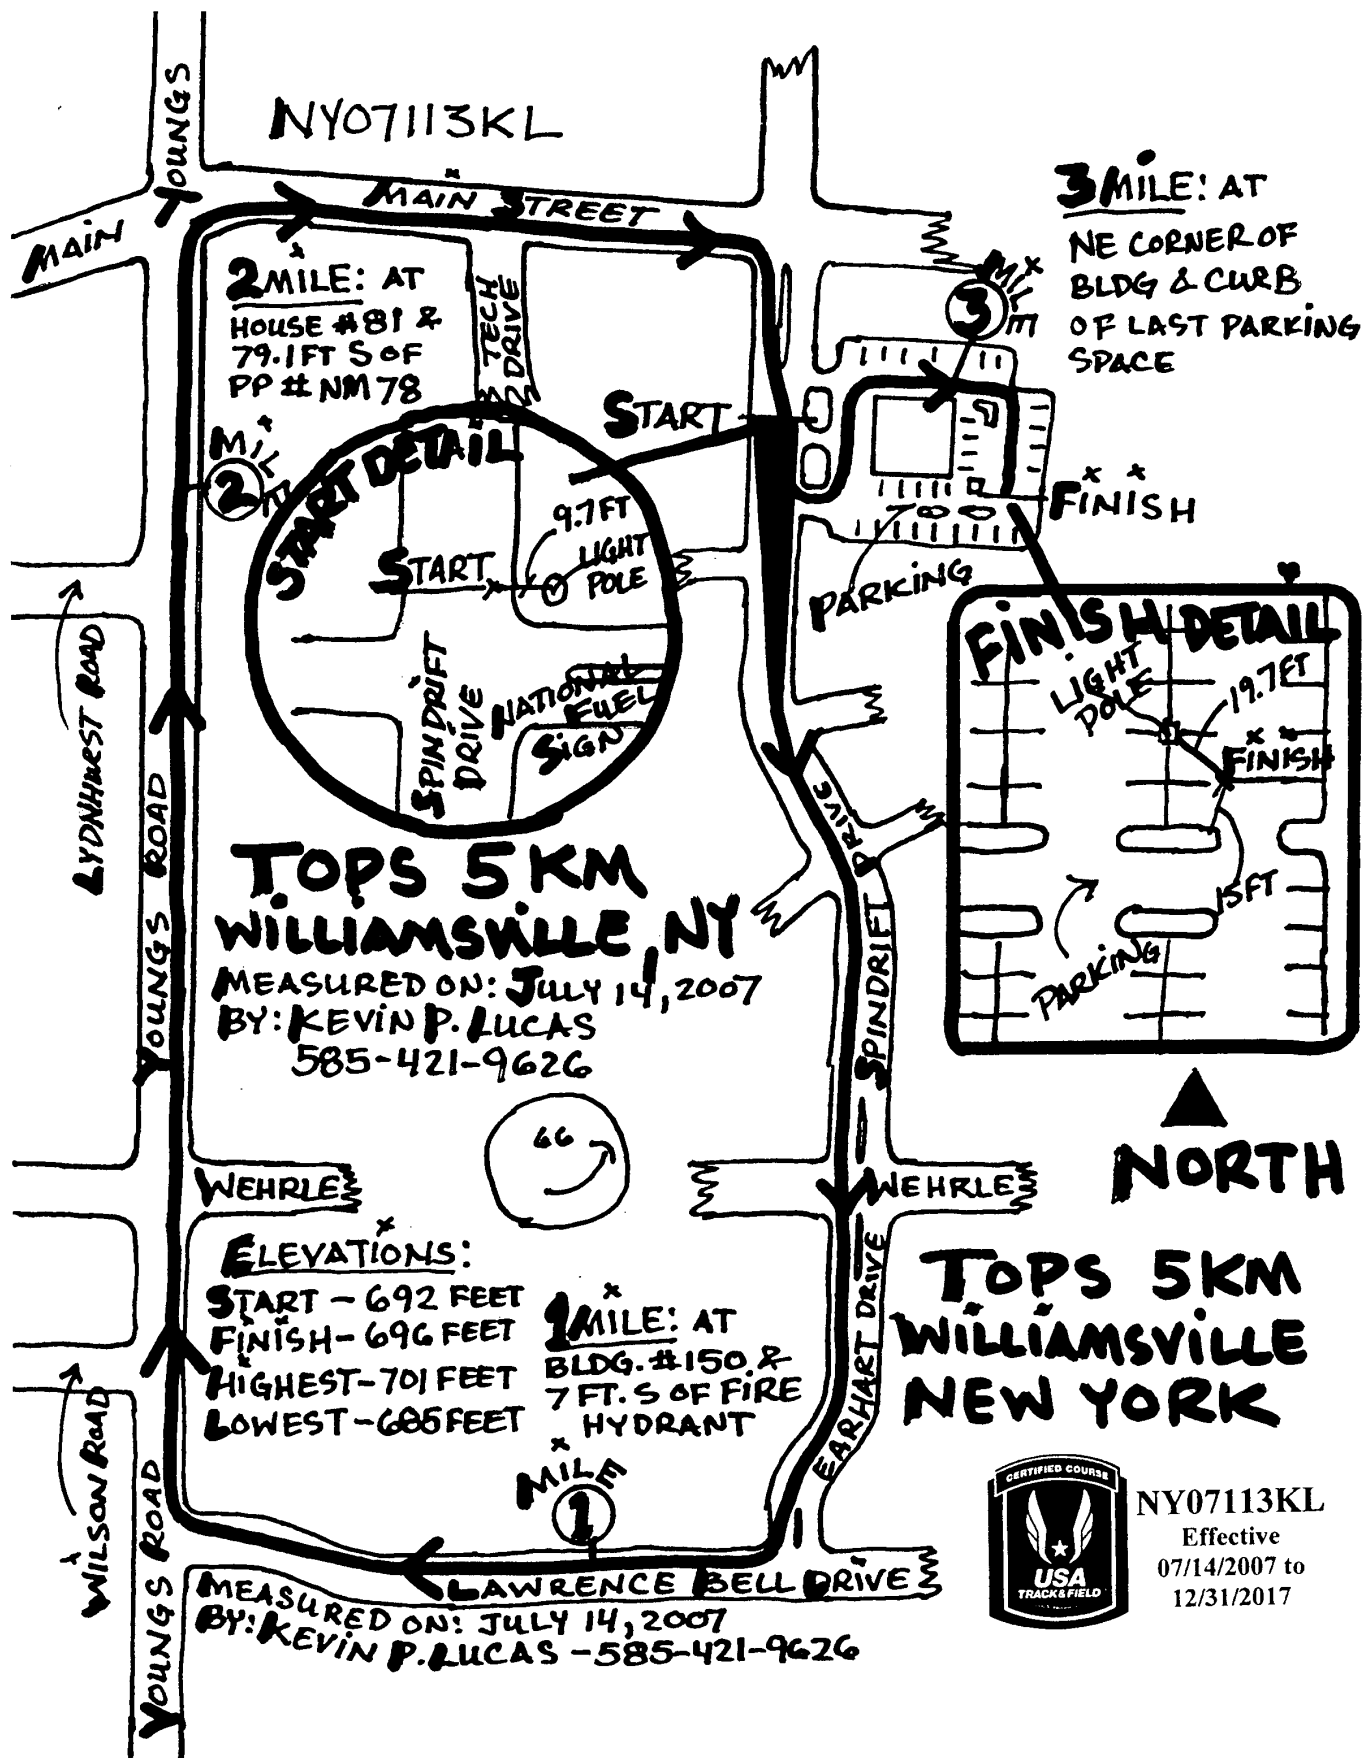 YOUNGS
NY07113KL
MAIN
MAIN STREET
3 MILE: AT
NE CORNER OF
BLDG & CURB
OF LAST PARKING
SPACE
MILE
3
2 MILE: AT
HOUSE #81 &
79.1FT S OF
PP # NM 78
TECH
DRIVE
START
MILE
2
START DETAIL
9.7FT
LIGHT
POLE
START
SPINDRIFT
DRIVE
NATIONAL
FUEL
SIGN
FINISH
PARKING
FINISH DETAIL
LIGHT
POLE
19.7FT
FINISH
15FT
PARKING
LYDNHURST ROAD
YOUNGS ROAD
SPINDRIFT DRIVE
TOPS 5KM
WILLIAMSVILLE, NY
MEASURED ON: JULY 14, 2007
BY: KEVIN P. LUCAS
585-421-9626
NORTH
WEHRLE
WEHRLE
ELEVATIONS:
START - 692 FEET
FINISH - 696 FEET
HIGHEST - 701 FEET
LOWEST - 685 FEET
1 MILE: AT
BLDG. #150 &
7 FT. S OF FIRE
HYDRANT
MILE
1
EARHART DRIVE
TOPS 5KM
WILLIAMSVILLE
NEW YORK
WILSON ROAD
YOUNGS ROAD
LAWRENCE BELL DRIVE
MEASURED ON: JULY 14, 2007
BY: KEVIN P. LUCAS - 585-421-9626
CERTIFIED COURSE
USA
TRACK & FIELD
NY07113KL
Effective
07/14/2007 to
12/31/2017